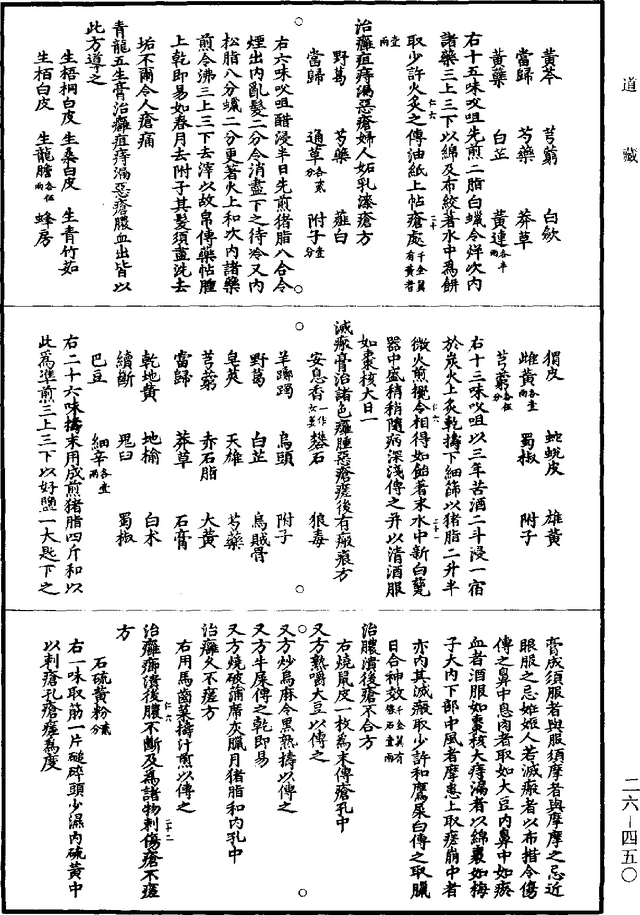 道藏
黃芩　芎藭　白斂
當歸　芍藥　莽草
黃蘗　白芷　黃連各半兩
右十五味㕮咀先煎二脂白蠟令烊次內
諸藥三上三下以綿及布絞著水中為餅
取少許火炙之傅油紙上帖瘡處千金翼有黃耆
壹兩
治癰疽痔漏惡瘡婦人妬乳漆瘡方
野葛　芍藥　薤白
當歸　通草各貳分　附子壹分
右六味㕮咀醋浸半日先煎猪脂八合令
煙出內亂髮二分令消盡下之待冷又內
松脂八分蠟二分更著火上和次內諸藥
煎令沸三上三下去滓以故帛傅藥帖腫
上乾即易如春月去附子其髮須盡洗去
垢不爾令人瘡痛
青龍五生膏治癰疽痔漏惡瘡膿血出皆以
此方導之
生梧桐白皮　生桑白皮　生青竹茹
生栢白皮　生龍膽各伍兩　蜂房
猬皮　蛇蛻皮　雄黃
雌黃各壹兩　蜀椒　附子
芎藭各伍分
右十三味㕮咀以三年苦酒二斗浸一宿
於炭火上炙乾擣下細篩以猪脂二升半
微火煎攪令相得如飴著末水中新白甆
器中盛稍稍隨病深淺傅之并以清酒服
如棗核大日一
滅瘢膏治諸色癰腫惡瘡瘥後有瘢痕方
安息香一作女萎　礜石　狼毒
羊躑躅　烏頭　附子
野葛　白芷　烏賊骨
皂莢　天雄　芍藥
芎藭　赤石脂　大黃
當歸　莽草　石膏
乾地黃　地榆　白朮
續斷　鬼臼　蜀椒
巴豆　細辛各壹兩
右二十六味擣末用成煎猪脂四斤和以
此為準煎三上三下以好鹽一大匙下之
膏成須服者與服須摩者與摩摩之忌近
眼服之忌姙娠人若滅瘢者以布揩令傷
傅之鼻中息肉者取如大豆內鼻中如瘀
血者酒服如棗核大痔漏者以綿裹如梅
子大內下部中風者摩患上取瘥崩中者
亦內其滅瘢取少許和鷹屎白傅之取臘
日合神效
治膿潰後瘡不合方
右燒鼠皮一枚為末傅瘡孔中
又方熟嚼大豆以傅之
又方炒烏麻令黑熟擣以傅之
又方牛屎傅之乾即易
又方燒破蒲席灰臘月猪脂和內孔中
治癰久不瘥方
右用馬齒菜擣汁煎以傅之
治癰癤潰後膿不斷及為諸物刺傷瘡不瘥
方
石硫黃粉貳分
右一味取筯一片碓碎頭少濕內硫黃中
以刺瘡孔瘡瘥為度
二六－四五〇